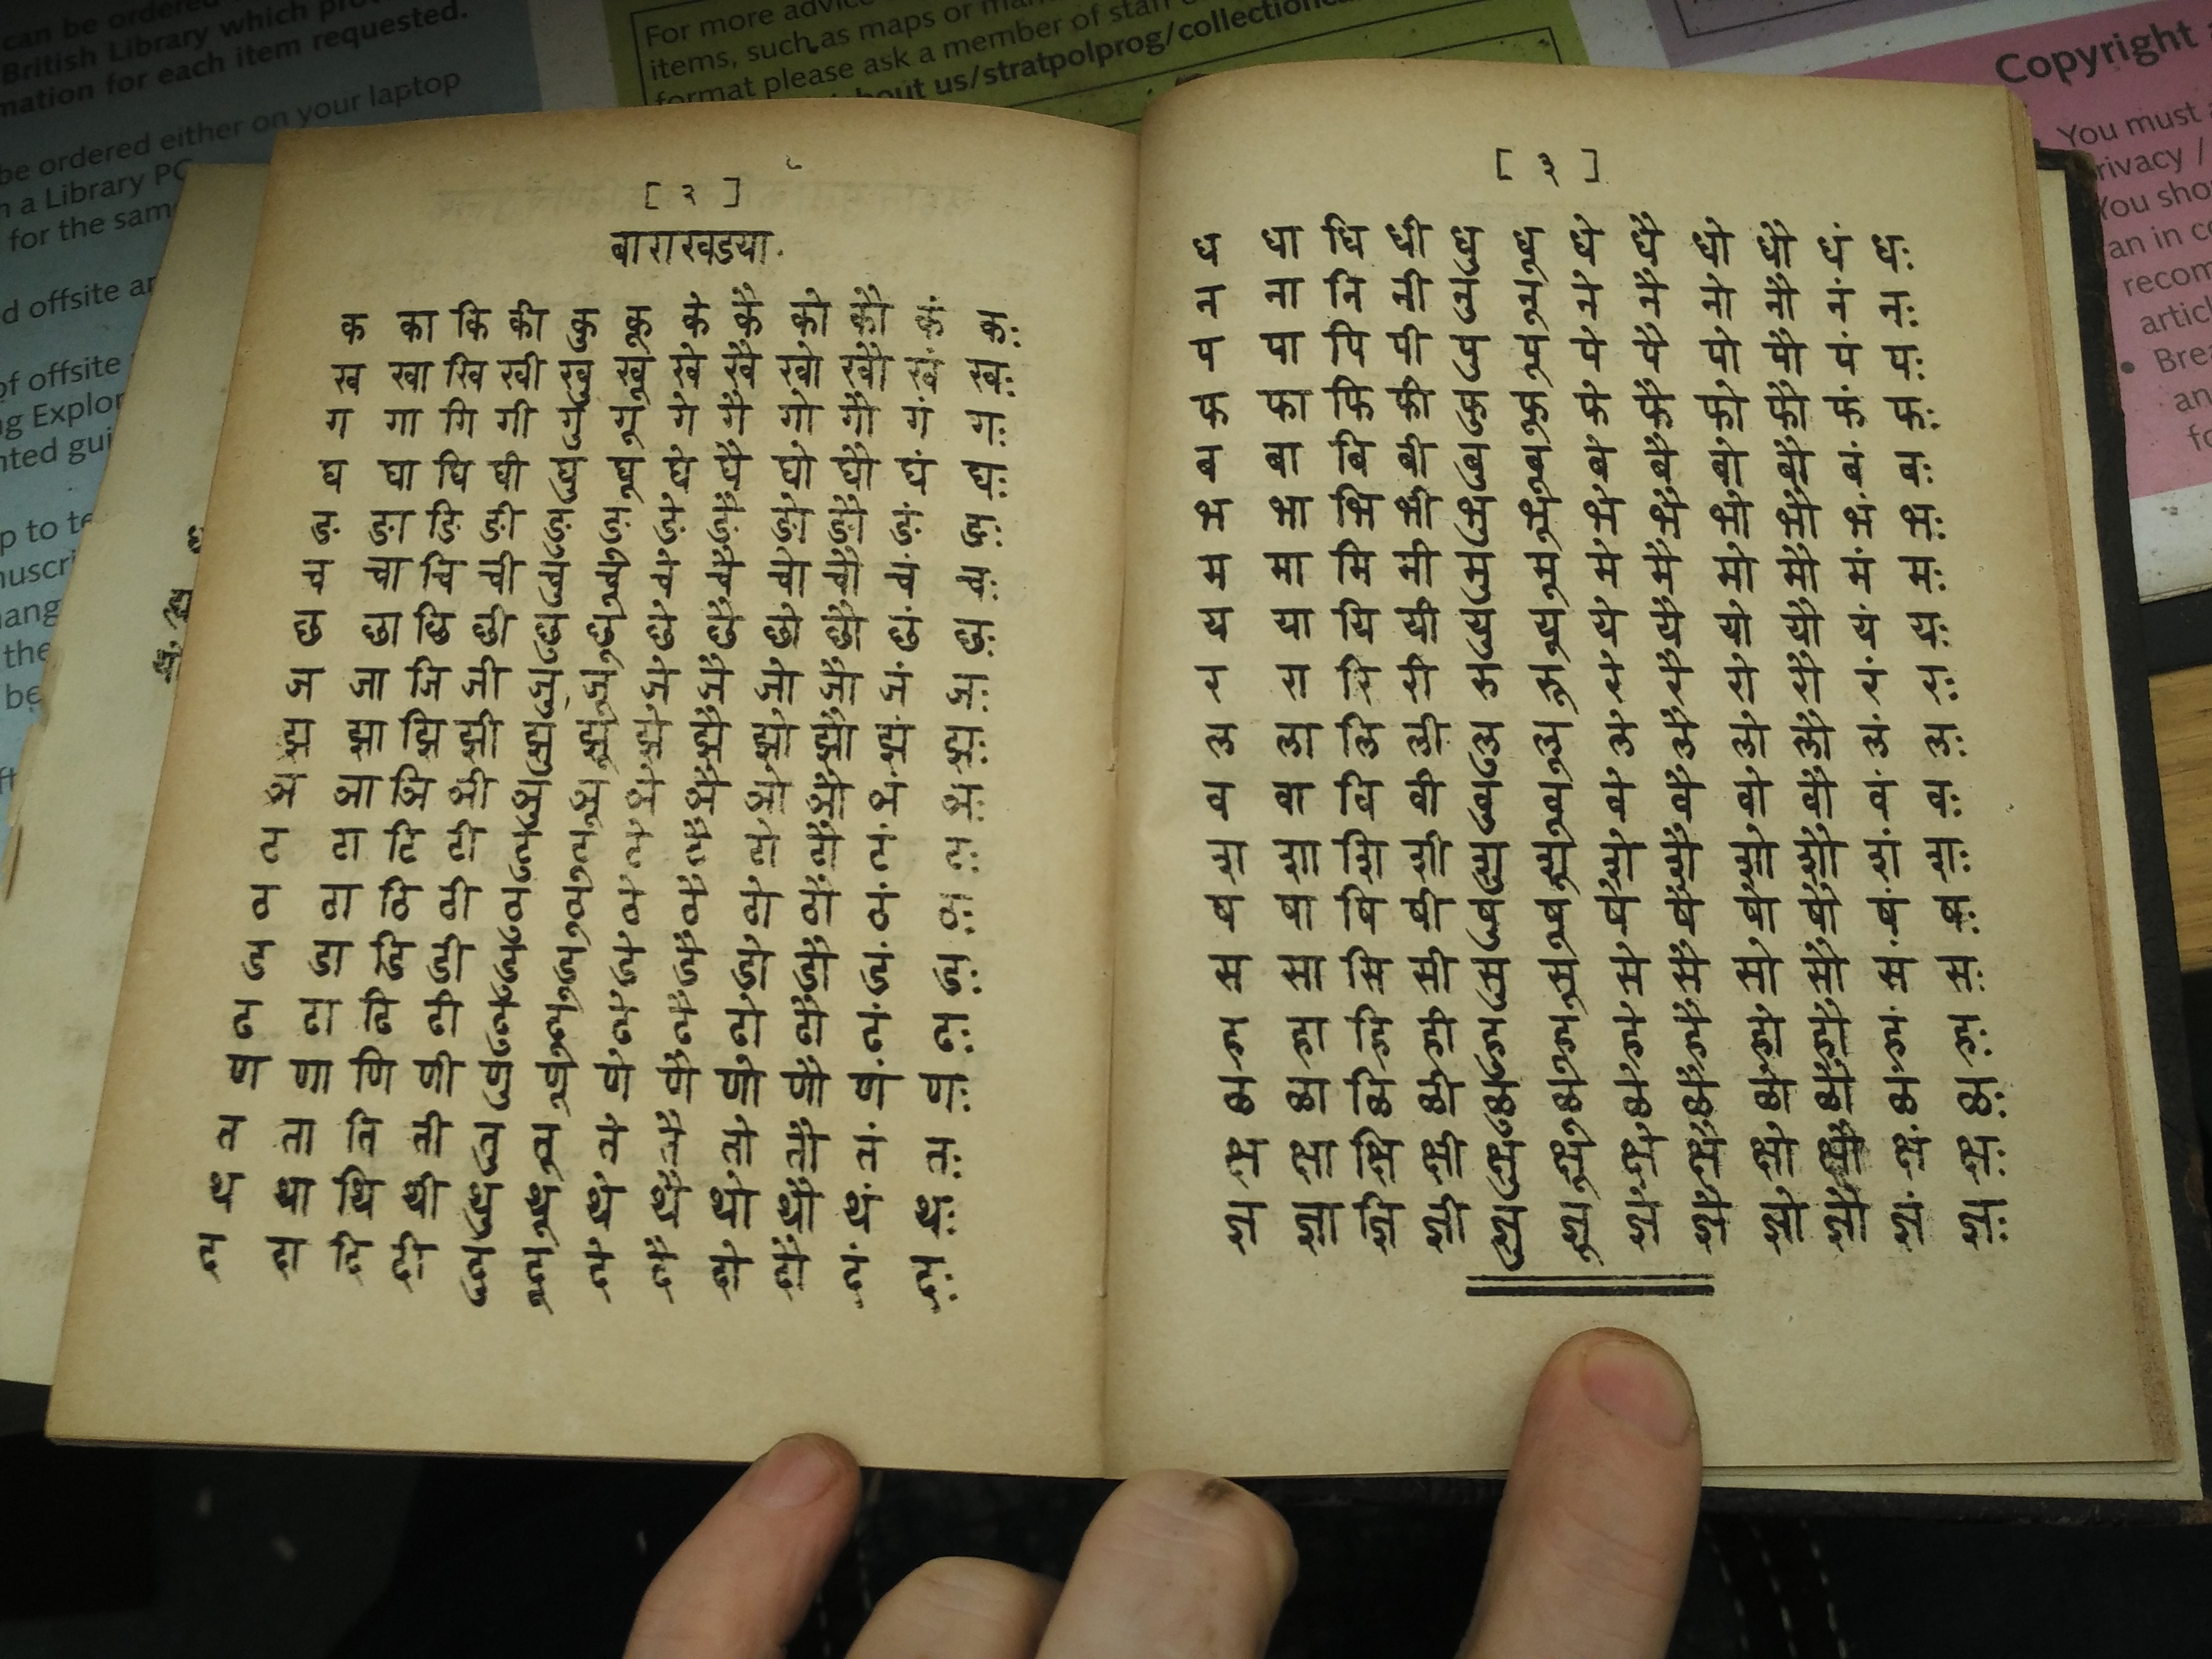 can be ordered
British Library which pro
mation for each item requested.
be ordered either on your laptop
n a Library PC
for the sam
d offsite ar
of offsite
ng Explor
nted gui
p to te
nuscri
ang
the
be
For more advice
items, such as maps or man
format please ask a member of staff
about us/stratpolprog/collectionca
Copyright
You must a
rivacy /
You shou
an in co
recom
articl
Brea
an
fo
[ २ ]
बाराखडया.
क का कि की कु कू के कै को कौ कं कः
ख खा खि खी खु खू खे खै खो खौ खं खः
ग गा गि गी गु गू गे गै गो गौ गं गः
घ घा घि घी घु घू घे घै घो घौ घं घः
ङ ङा ङि ङी ङु ङू ङे ङै ङो ङौ ङं ङः
च चा चि ची चु चू चे चै चो चौ चं चः
छ छा छि छी छु छू छे छै छो छौ छं छः
ज जा जि जी जु जू जे जै जो जौ जं जः
झ झा झि झी झु झू झे झै झो झौ झं झः
ञ ञा ञि ञी ञु ञू ञे ञै ञो ञौ ञं ञः
ट टा टि टी टु टू टे टै टो टौ टं टः
ठ ठा ठि ठी ठु ठू ठे ठै ठो ठौ ठं ठः
ड डा डि डी डु डू डे डै डो डौ डं डः
ढ ढा ढि ढी ढु ढू ढे ढै ढो ढौ ढं ढः
ण णा णि णी णु णू णे णै णो णौ णं णः
त ता ति ती तु तू ते तै तो तौ तं तः
थ था थि थी थु थू थे थै थो थौ थं थः
द दा दि दी दु दू दे दै दो दौ दं दः
[ ३ ]
ध धा धि धी धु धू धे धै धो धौ धं धः
न ना नि नी नु नू ने नै नो नौ नं नः
प पा पि पी पु पू पे पै पो पौ पं पः
फ फा फि फी फु फू फे फै फो फौ फं फः
ब बा बि बी बु बू बे बै बो बौ बं बः
भ भा भि भी भु भू भे भै भो भौ भं भः
म मा मि मी मु मू मे मै मो मौ मं मः
य या यि यी यु यू ये यै यो यौ यं यः
र रा रि री रु रू रे रै रो रौ रं रः
ल ला लि ली लु लू ले लै लो लौ लं लः
व वा वि वी वु वू वे वै वो वौ वं वः
श शा शि शी शु शू शे शै शो शौ शं शः
ष षा षि षी षु षू षे षै षो षौ षं षः
स सा सि सी सु सू से सै सो सौ सं सः
ह हा हि ही हु हू हे है हो हौ हं हः
ळ ळा ळि ळी ळु ळू ळे ळै ळो ळौ ळं ळः
क्ष क्षा क्षि क्षी क्षु क्षू क्षे क्षै क्षो क्षौ क्षं क्षः
ज्ञ ज्ञा ज्ञि ज्ञी ज्ञु ज्ञू ज्ञे ज्ञै ज्ञो ज्ञौ ज्ञं ज्ञः